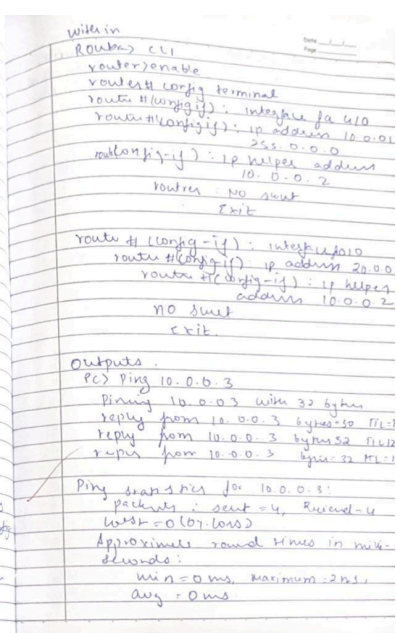 within
Date
Page
Router> CLI
router>enable
router# config terminal
router #(config if): interface fa 4/0
router #(config if): ip address 10.0.01
255.0.0.0
(config-if): ip helper address
10.0.0.2
router : No shut
Exit
route # (config-if): interface
router #(config if) ip address 20.0.0
router #(config-if): ip helper
address 10.0.0.2
no shut
exit.
Outputs.
PC> Ping 10.0.0.3
Pinging 10.0.03 with 32 bytes
reply from 10.0.0.3 bytes=30 TTL=1
reply from 10.0.0.3 bytes 32 TTL12
reply from 10.0.0.3 bytes=32 TTL=1
Ping statistics for 10.0.0.3:
packets: sent =4, Received-4
Lost =0 (0% loss)
Approximate round times in mili-
seconds:
min = 0 ms, maximum =2ms,
avg = 0 ms